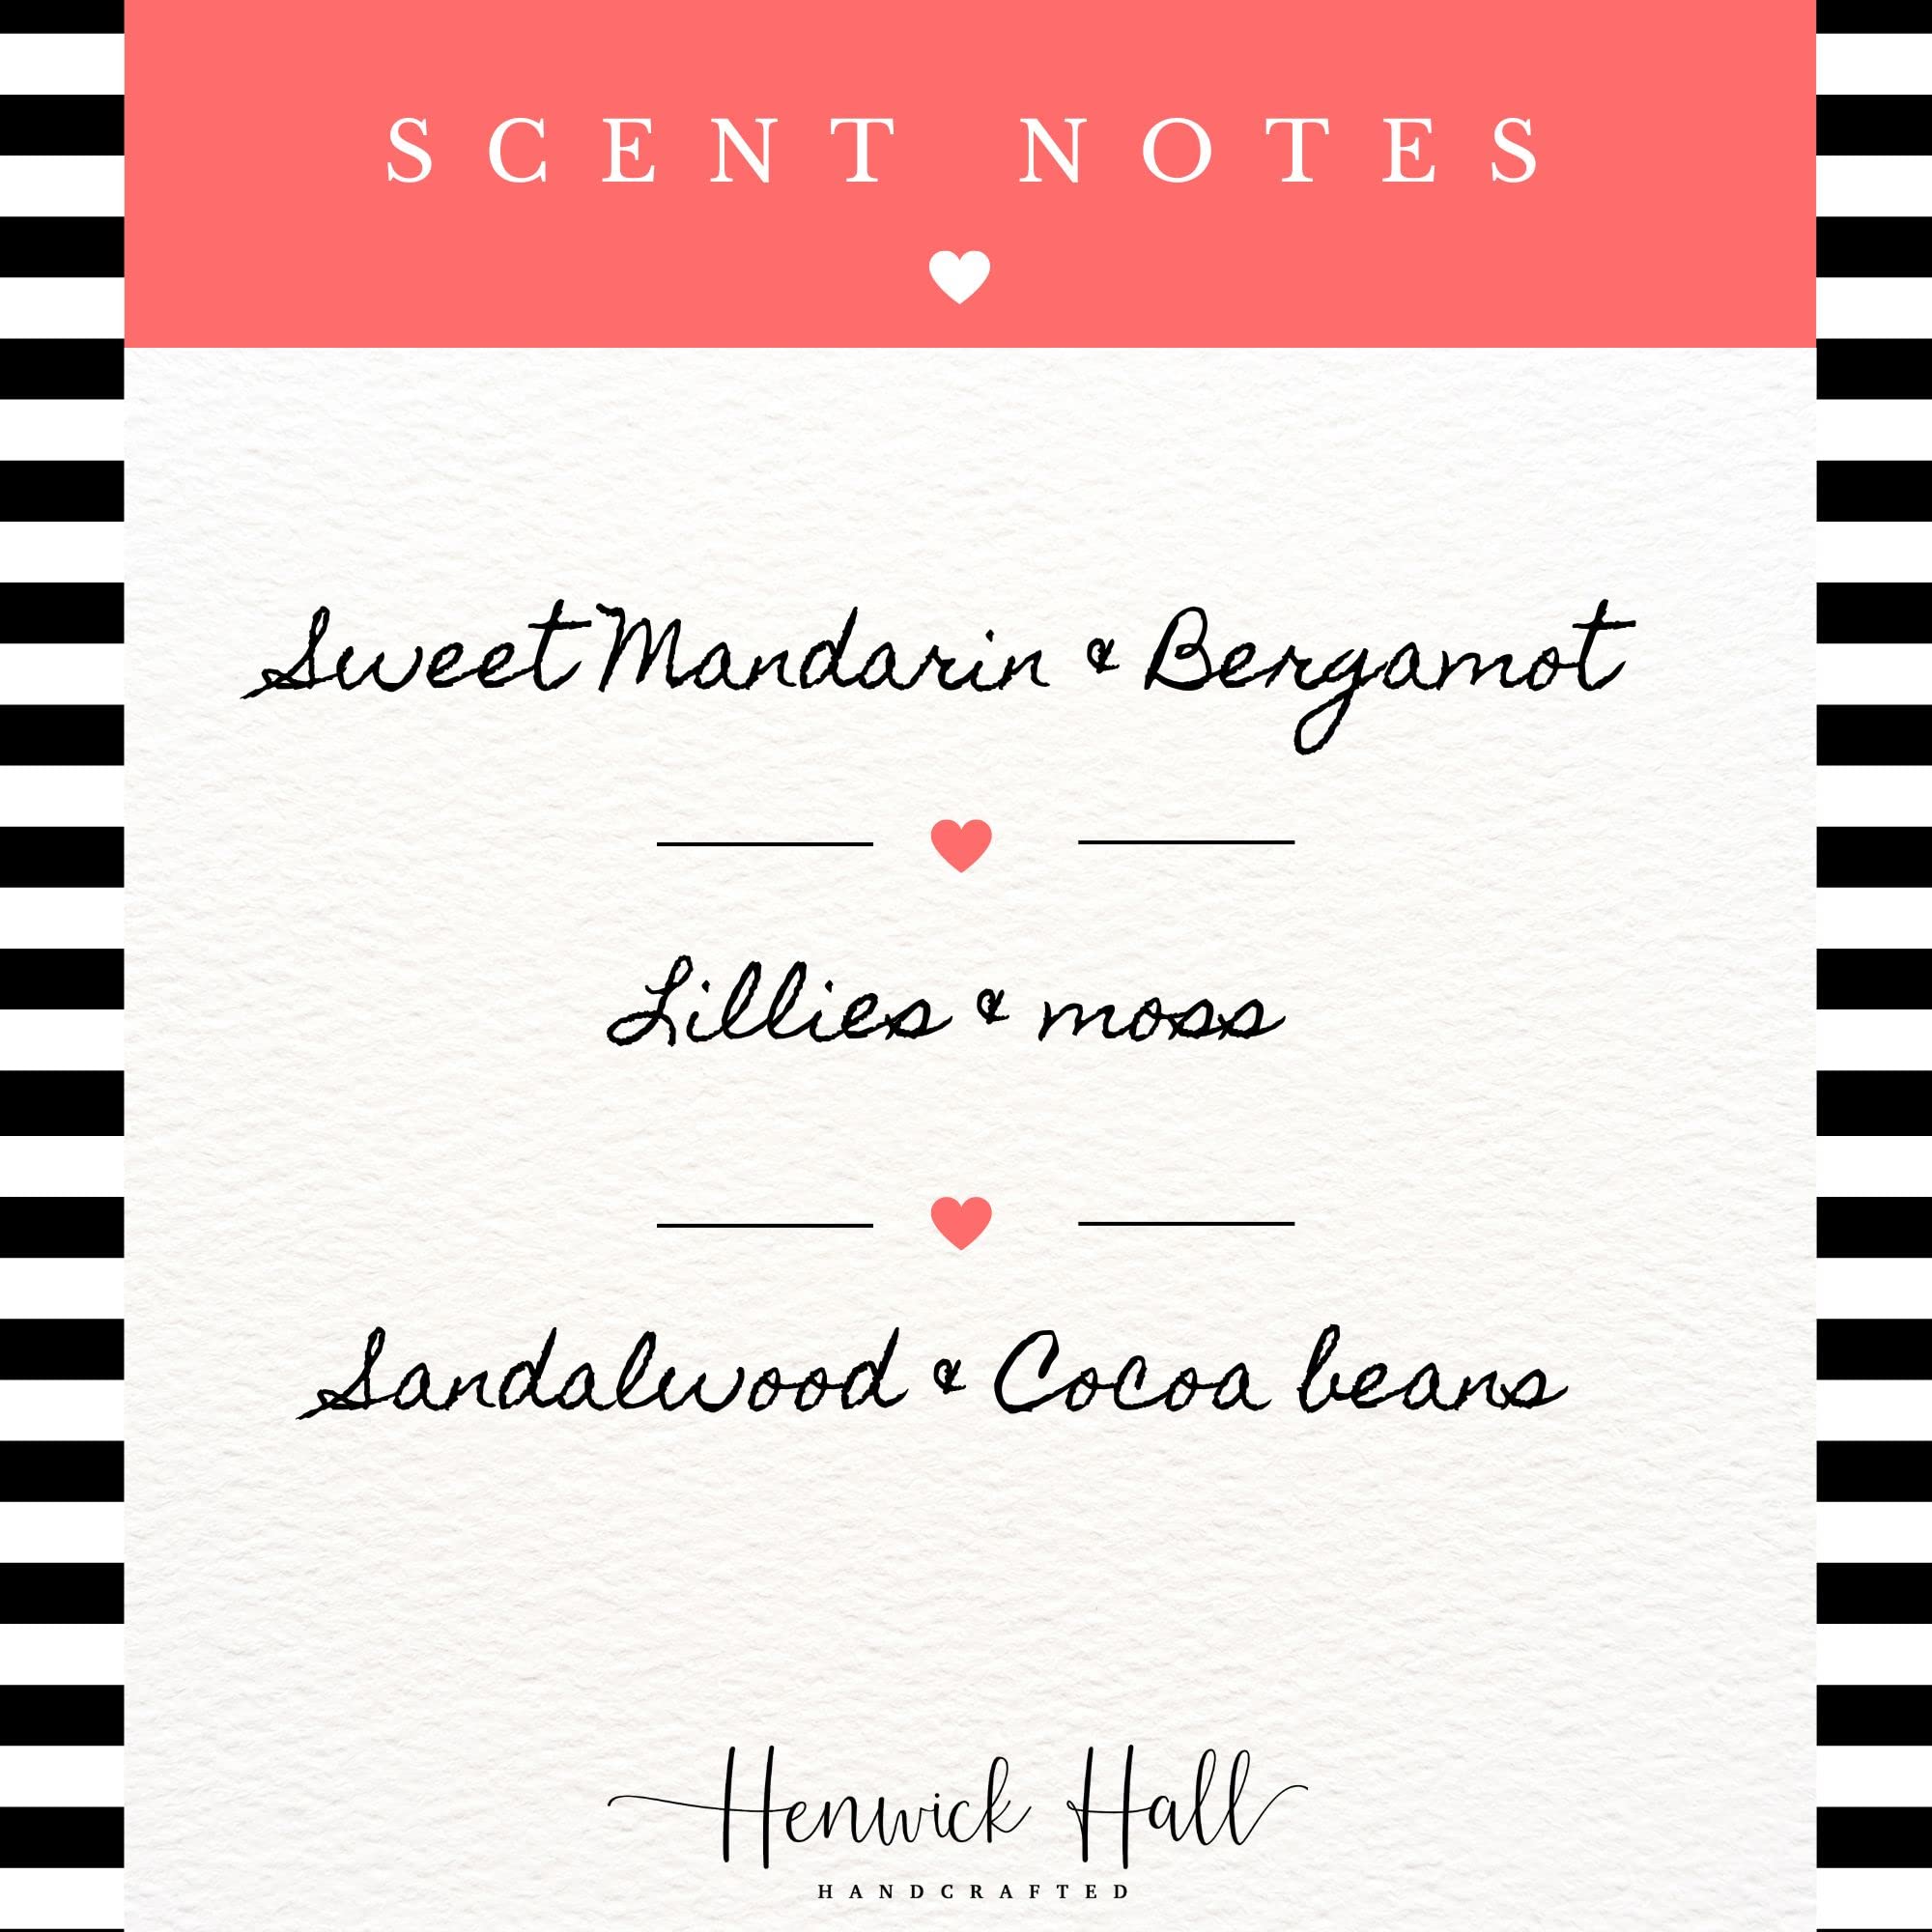 SCENT NOTES
Sweet Mandarin & Bergamot
Lillies & moss
Sandalwood & Cocoa beans
Henwick Hall
HANDCRAFTED